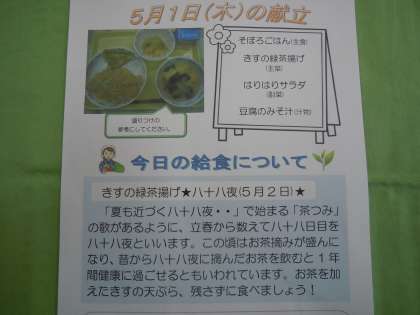 ５月１日（木）の献立
そぼろごはん（主食）
きすの緑茶揚げ
（主菜）
はりはりサラダ
（副菜）
豆腐のみそ汁（汁物）
盛りつけの
参考にしてください。
今日の給食について
きすの緑茶揚げ★八十八夜（５月２日）★
「夏も近づく八十八夜・・」で始まる「茶つみ」
の歌があるように、立春から数えて八十八日目を
八十八夜といいます。この頃はお茶摘みが盛んに
なり、昔から八十八夜に摘んだお茶を飲むと１年
間健康に過ごせるともいわれています。お茶を加
えたきすの天ぷら、残さずに食べましょう！